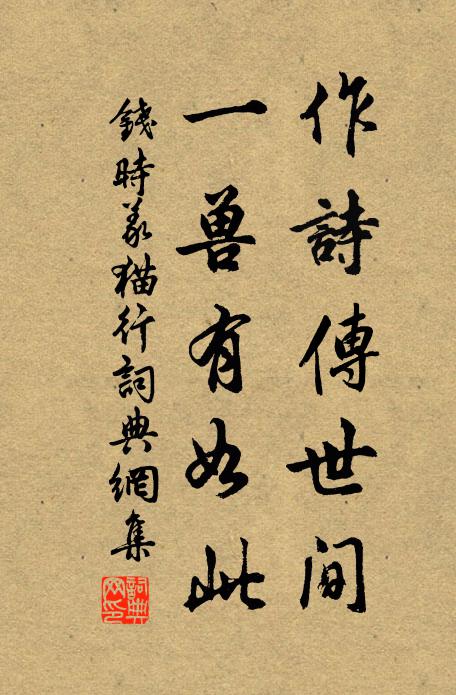 作詩傳世間
一兽有如此
錢時義猫行詞典網集
詞典網印